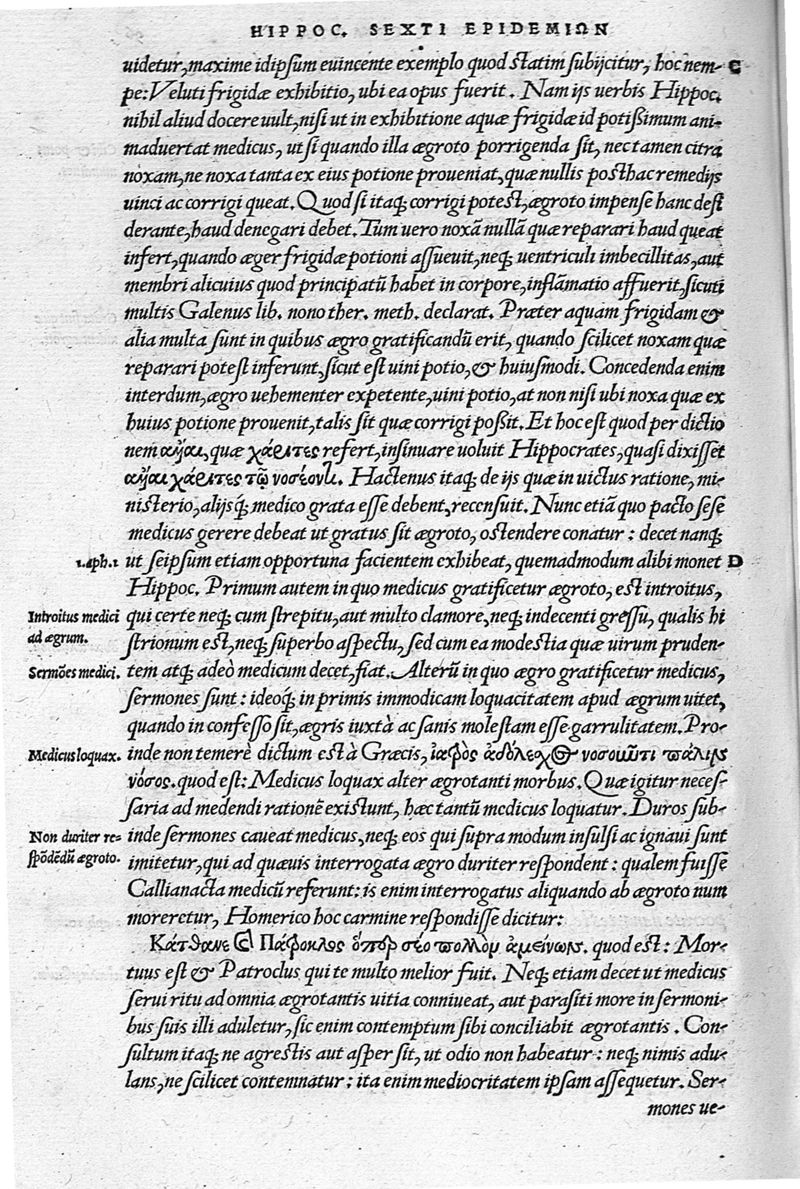 HIPPOC. SEXTI EPIDEMIΩN
uidetur, maxime id ipsum euincente exemplo quod statim subijcitur, hoc nem- C
pe: Veluti frigidæ exhibitio, ubi ea opus fuerit. Nam ijs uerbis Hippoc.
nihil aliud docere uult, nisi ut in exhibitione aquæ frigidæ id potißimum ani-
maduertat medicus, ut si quando illa ægroto porrigenda sit, nec tamen citra
noxam, ne noxa tanta ex eius potione proueniat, quæ nullis posthac remedijs
uinci ac corrigi queat. Quod si itaq; corrigi potest, ægroto impense hanc desi
derante, haud denegari debet. Tum uero noxã nullã quæ reparari haud queat
infert, quando æger frigidæ potioni assueuit, neq; uentriculi imbecillitas, aut
membri alicuius quod principatũ habet in corpore, inflãmatio affuerit, sicuti
multis Galenus lib. nono ther. meth. declarat. Præter aquam frigidam &
alia multa sunt in quibus ægro gratificandũ erit, quando scilicet noxam quæ
reparari potest inferunt, sicut est uini potio, & huiusmodi. Concedenda enim
interdum, ægro uehementer expetente, uini potio, at non nisi ubi noxa quæ ex
huius potione prouenit, talis sit quæ corrigi poßit. Et hoc est quod per dictio
nem αὗται, quæ χάριτες refert, insinuare uoluit Hippocrates, quasi dixisset
αὗται χάριτες τῷ νοσέοντι. Hactenus itaq; de ijs quæ in uictus ratione, mi-
nisterio, alijsq́; medico grata esse debent, recensuit. Nunc etiã quo pacto sese
medicus gerere debeat ut gratus sit ægroto, ostendere conatur: decet nanq;
1. aph. 1 ut seipsum etiam opportuna facientem exhibeat, quemadmodum alibi monet D
Hippoc. Primum autem in quo medicus gratificetur ægroto, est introitus,
Introitus medici qui certe neq; cum strepitu, aut multo clamore, neq; indecenti gressu, qualis hi
ad ægrum. strionum est, neq; superbo aspectu, sed cum ea modestia quæ uirum pruden-
Sermões medici. tem atq; adeò medicum decet, fiat. Alterũ in quo ægro gratificetur medicus,
sermones sunt: ideoq́; in primis immodicam loquacitatem apud ægrum uitet,
quando in confesso sit, ægris iuxtà ac sanis molestam esse garrulitatem. Pro-
Medicus loquax. inde non temerè dictum est à Græcis, ἰατρὸς ἀδόλεσχος νοσοῦντι πάλιν
νόσος. quod est: Medicus loquax alter ægrotanti morbus. Quæ igitur neces-
saria ad medendi rationẽ existunt, hæc tantũ medicus loquatur. Duros sub-
Non duriter re= inde sermones caueat medicus, neq; eos qui supra modum insulsi ac ignaui sunt
spõdẽdũ ægroto. imitetur, qui ad quæuis interrogata ægro duriter respondent: qualem fuisse
Callianacta medicũ referunt: is enim interrogatus aliquando ab ægroto num
moreretur, Homerico hoc carmine respondisse dicitur:
Κάτθανε καὶ Πάτροκλος ὅπερ σέο πολλὸν ἀμείνων. quod est: Mor-
tuus est & Patroclus qui te multo melior fuit. Neq; etiam decet ut medicus
serui ritu ad omnia ægrotantis uitia conniueat, aut parasiti more in sermoni-
bus suis illi aduletur, sic enim contemptum sibi conciliabit ægrotantis. Con-
sultum itaq; ne agrestis aut asper sit, ut odio non habeatur: neq; nimis adu-
lans, ne scilicet contemnatur: ita enim mediocritatem ipsam assequetur. Ser-
mones ue-